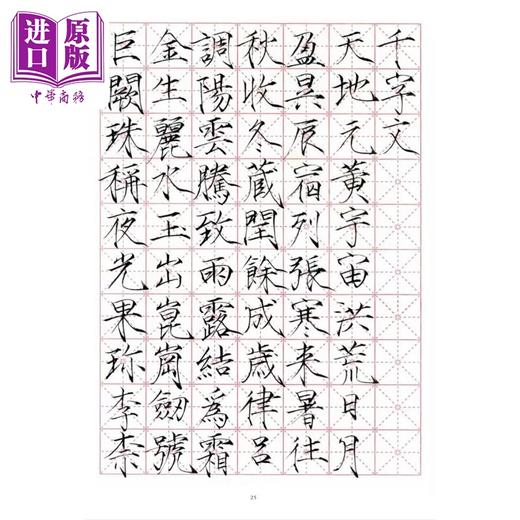 进口
原版
中華商務
千字文
天地元黃宇宙洪荒日月
盈昃辰宿列張寒来暑往
秋收冬蔵閏餘成歳律呂
調陽雲騰致雨露結爲霜
金生麗水玉出崑崗劒號
巨闕珠稱夜光果珎李柰
25